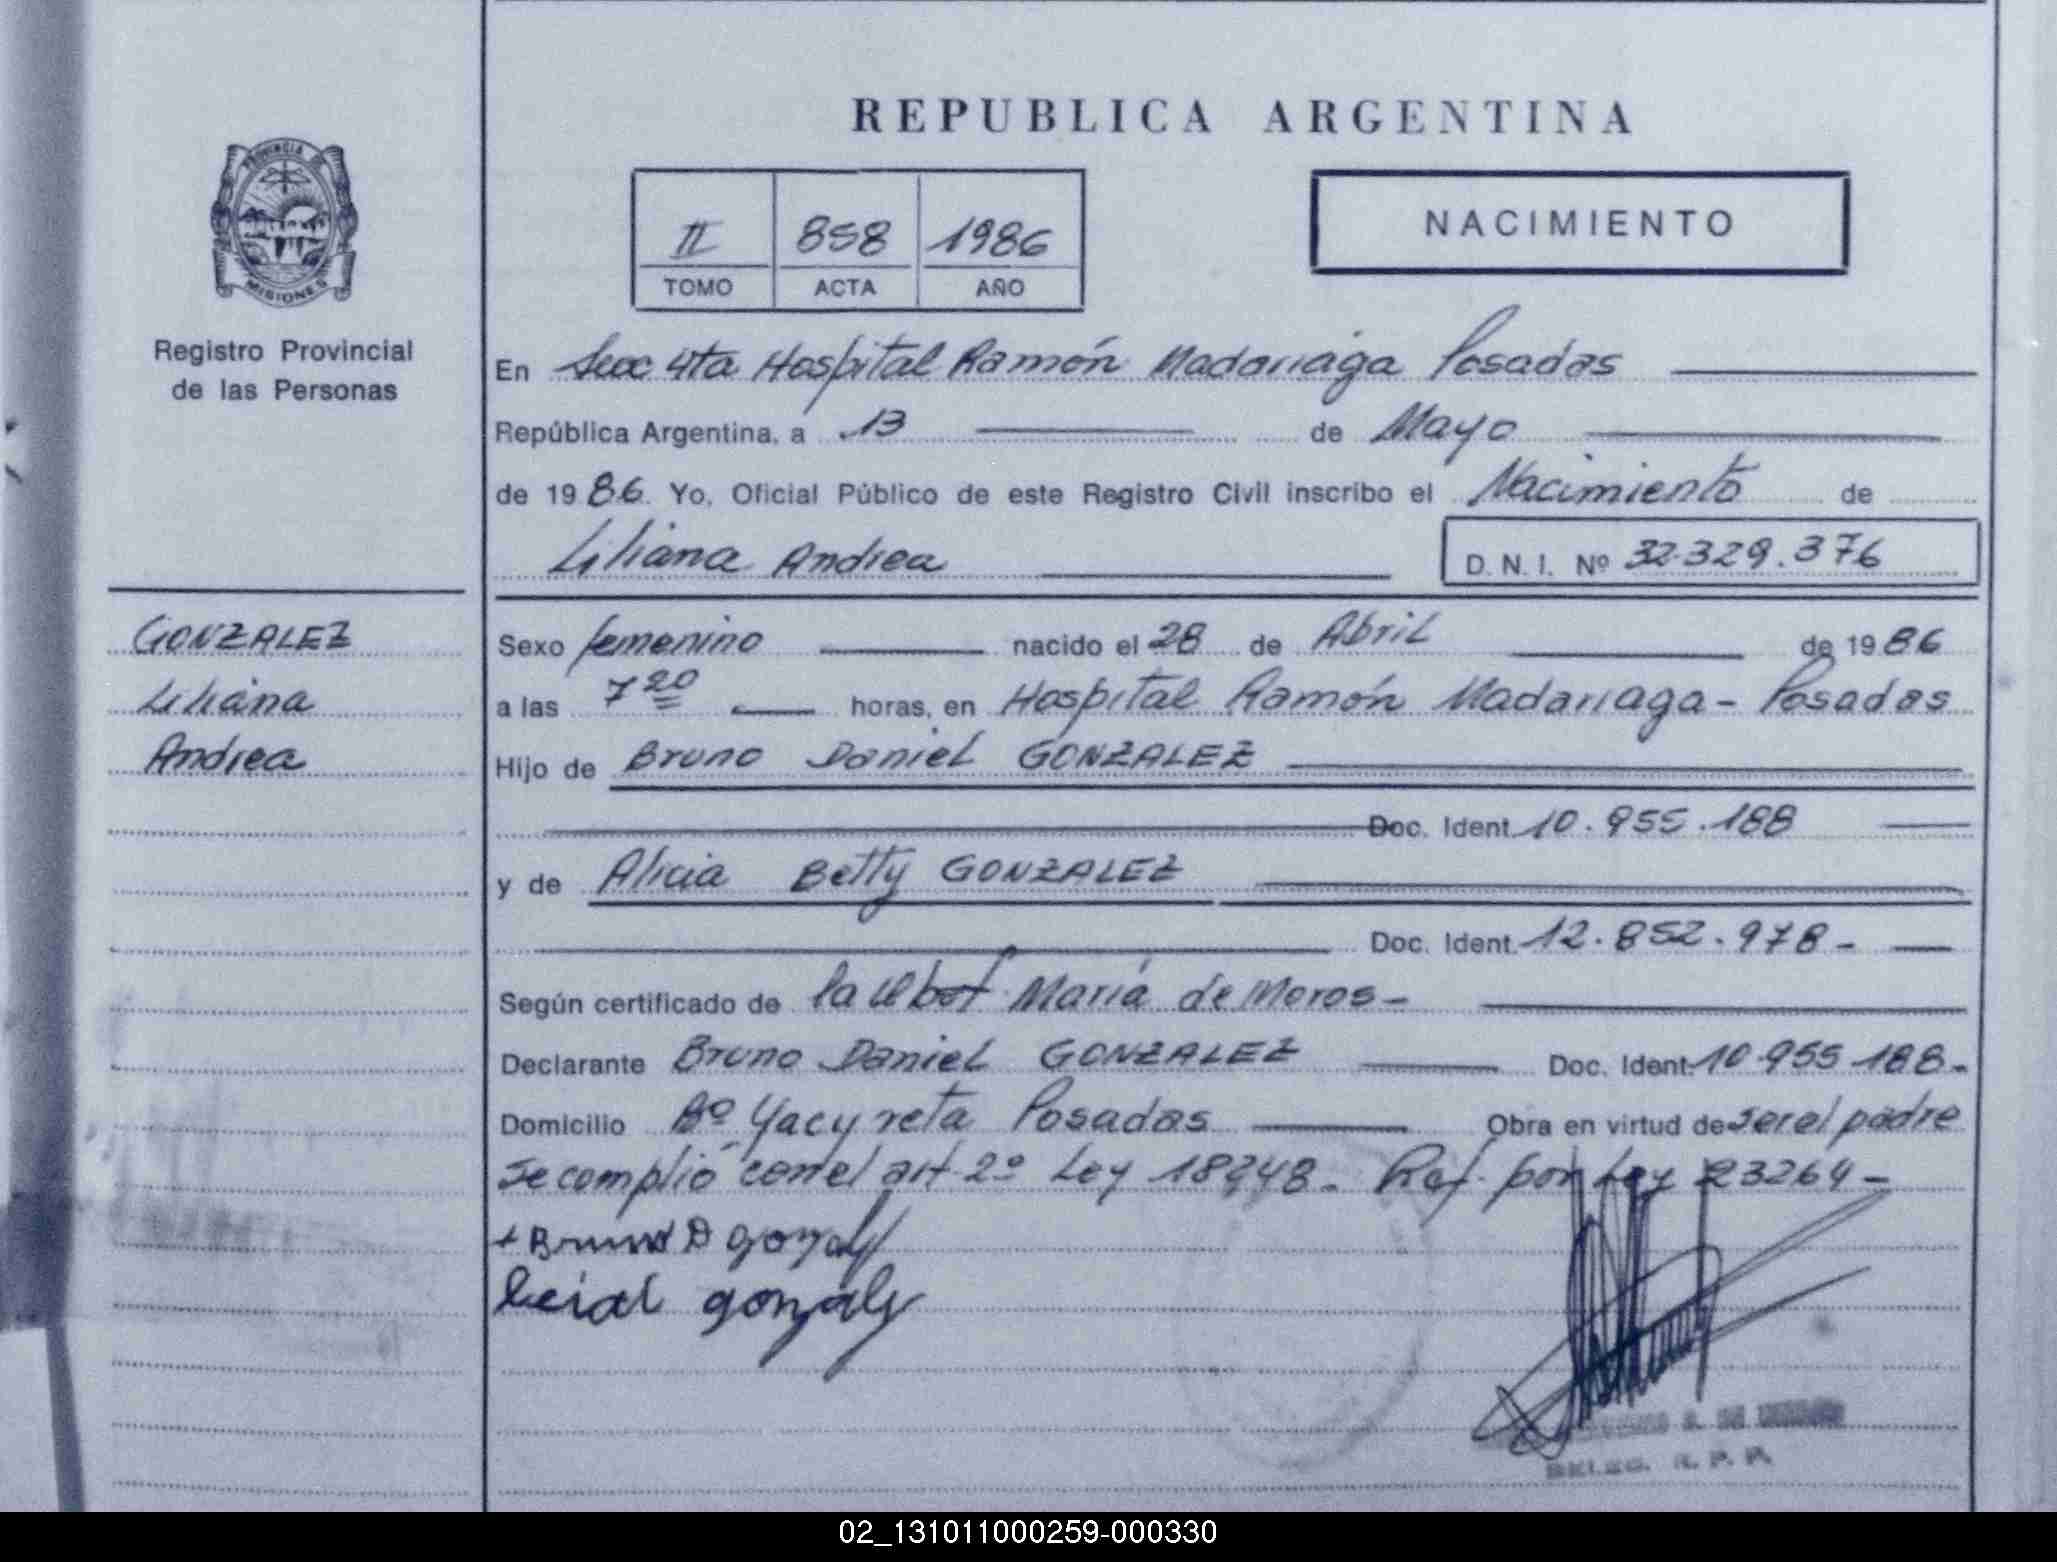 REPUBLICA ARGENTINA
PROVINCIA DE
MISIONES
Registro Provincial
de las Personas
II 858 1986
TOMO ACTA AÑO
NACIMIENTO
En Secc 4ta Hospital Ramón Madariaga Posadas
República Argentina, a 13 de Mayo
de 1986. Yo, Oficial Público de este Registro Civil inscribo el Nacimiento de
Liliana Andrea D. N. I. Nº 32.329.376
GONZALEZ
Liliana
Andrea
Sexo femenino nacido el 28 de Abril de 1986
a las 7 20 horas, en Hospital Ramón Madariaga - Posadas
Hijo de Bruno Daniel GONZALEZ
Doc. Ident. 10.955.188
y de Alicia Betty GONZALEZ
Doc. Ident. 12.852.978-
Según certificado de la María de Moros-
Declarante Bruno Daniel GONZALEZ Doc. Ident. 10.955.188-
Domicilio Bº Yacyreta Posadas Obra en virtud de ser el padre
se complió con el art. 2º Ley 18248. Ref. por Ley 23264-
+ Bruno D
DELEG. R. P. P.
02_131011000259-000330